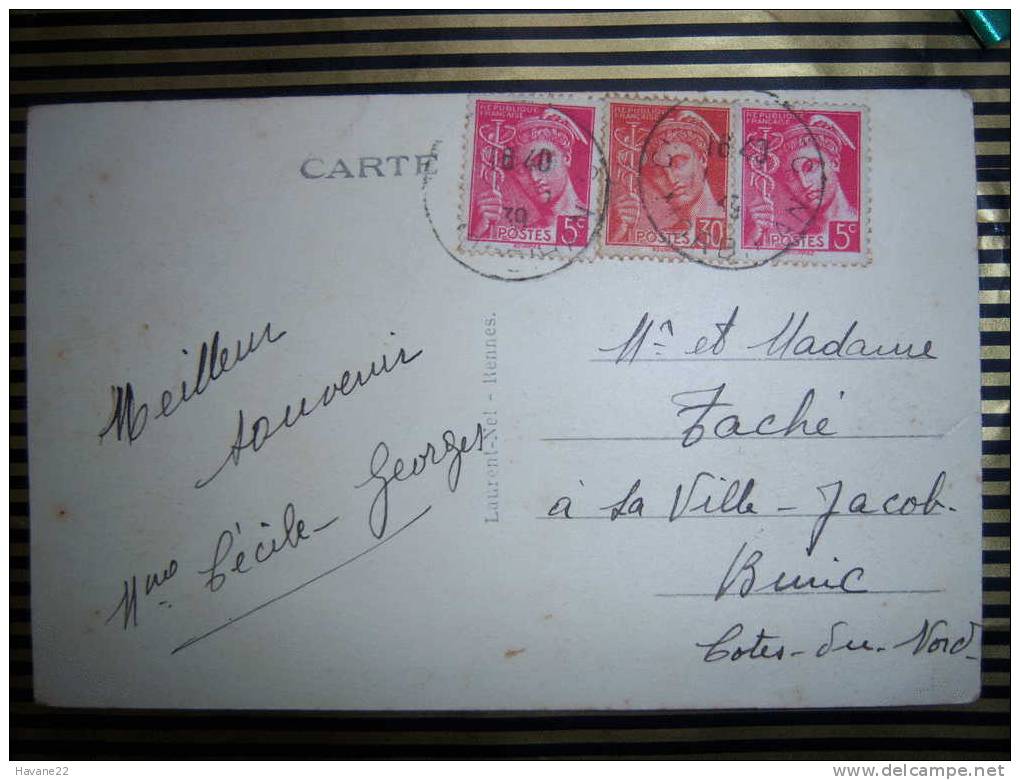 CARTE
RÉPUBLIQUE FRANÇAISE
POSTES
5c
RÉPUBLIQUE FRANÇAISE
POSTES
30
RÉPUBLIQUE FRANÇAISE
POSTES
5c
18 40
39
Meilleur
souvenir
Mme Cécile-Georges
Laurent-Nel - Rennes.
Mr et Madame
Taché
à La Ville-Jacob.
Binic
Cotes-du-Nord
Havane22
www.delcampe.net